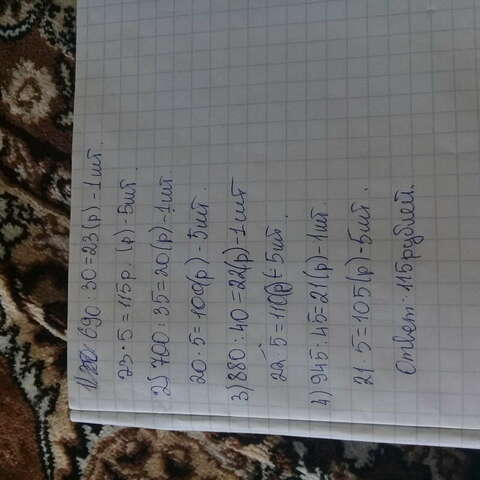 1) 690 : 30 = 23 (р) - 1 шт.
23 · 5 = 115р. (р) - 5шт.
2) 700 : 35 = 20 (р) - 1шт.
20 · 5 = 100(р) - 5шт.
3) 880 : 40 = 22 (р) - 1 шт
22 · 5 = 110(р) - 5шт.
4) 945 : 45 = 21 (р) - 1шт.
21 · 5 = 105 (р) - 5шт.
Ответ: 115 рублей.